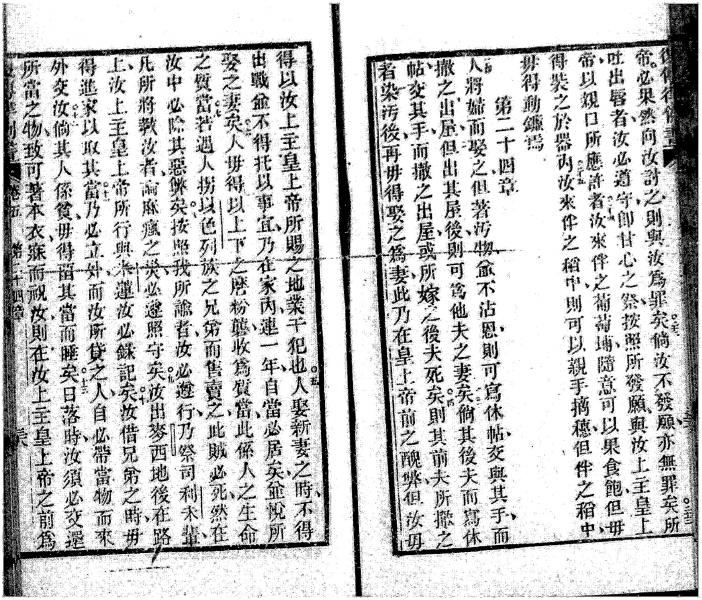 帝必果然向汝討之則與汝為罪矣倘汝不發願亦無罪矣所
吐出唇者汝必遵守即甘心之祭按照所發願與汝上主皇上
帝以親口所應許者汝來伴之葡萄埔隨意可以果食飽但毋
得裝之於器內汝來伴之稻中則可以親手摘穗但伴之稻中
毋得動鐮焉
第二十四章
人將婦而娶之但著污物並不沾恩則可寫休帖交與其手而
撒之出屋但出其屋後則可為他夫之妻矣倘其後夫而寫休
帖交其手而撒之出屋或所嫁之後夫死矣則其前夫所撒之
者染污後再毋得娶之為妻此乃在皇上帝前之醜弊但汝毋
得以汝上主皇上帝所賜之地業干犯也人娶新妻之時不得
出戰並不得托以事宜乃在家內連一年自當必居矣並悅所
娶之妻矣人毋得以上下之磨粉礱收為質當此係人之生命
之質當若遇人拐以色列族之兄弟而售賣之此賊必死然在
汝中必除其惡弊矣按照我所諭者汝必遵行乃祭司利未輩
凡所將教汝者論麻瘋之災必遵照守矣汝出麥西地後在路
上汝上主皇上帝所行與米運汝必錄記矣汝借兄弟之時毋
得進家以取其當乃必立外而汝所貸之人自必帶當物而來
外交汝倘其人係貧毋得留其當而睡矣日落時汝須必交還
所當之物致可著本衣寐而祝汝則在汝上主皇上帝之前為
卷五 第二十四章